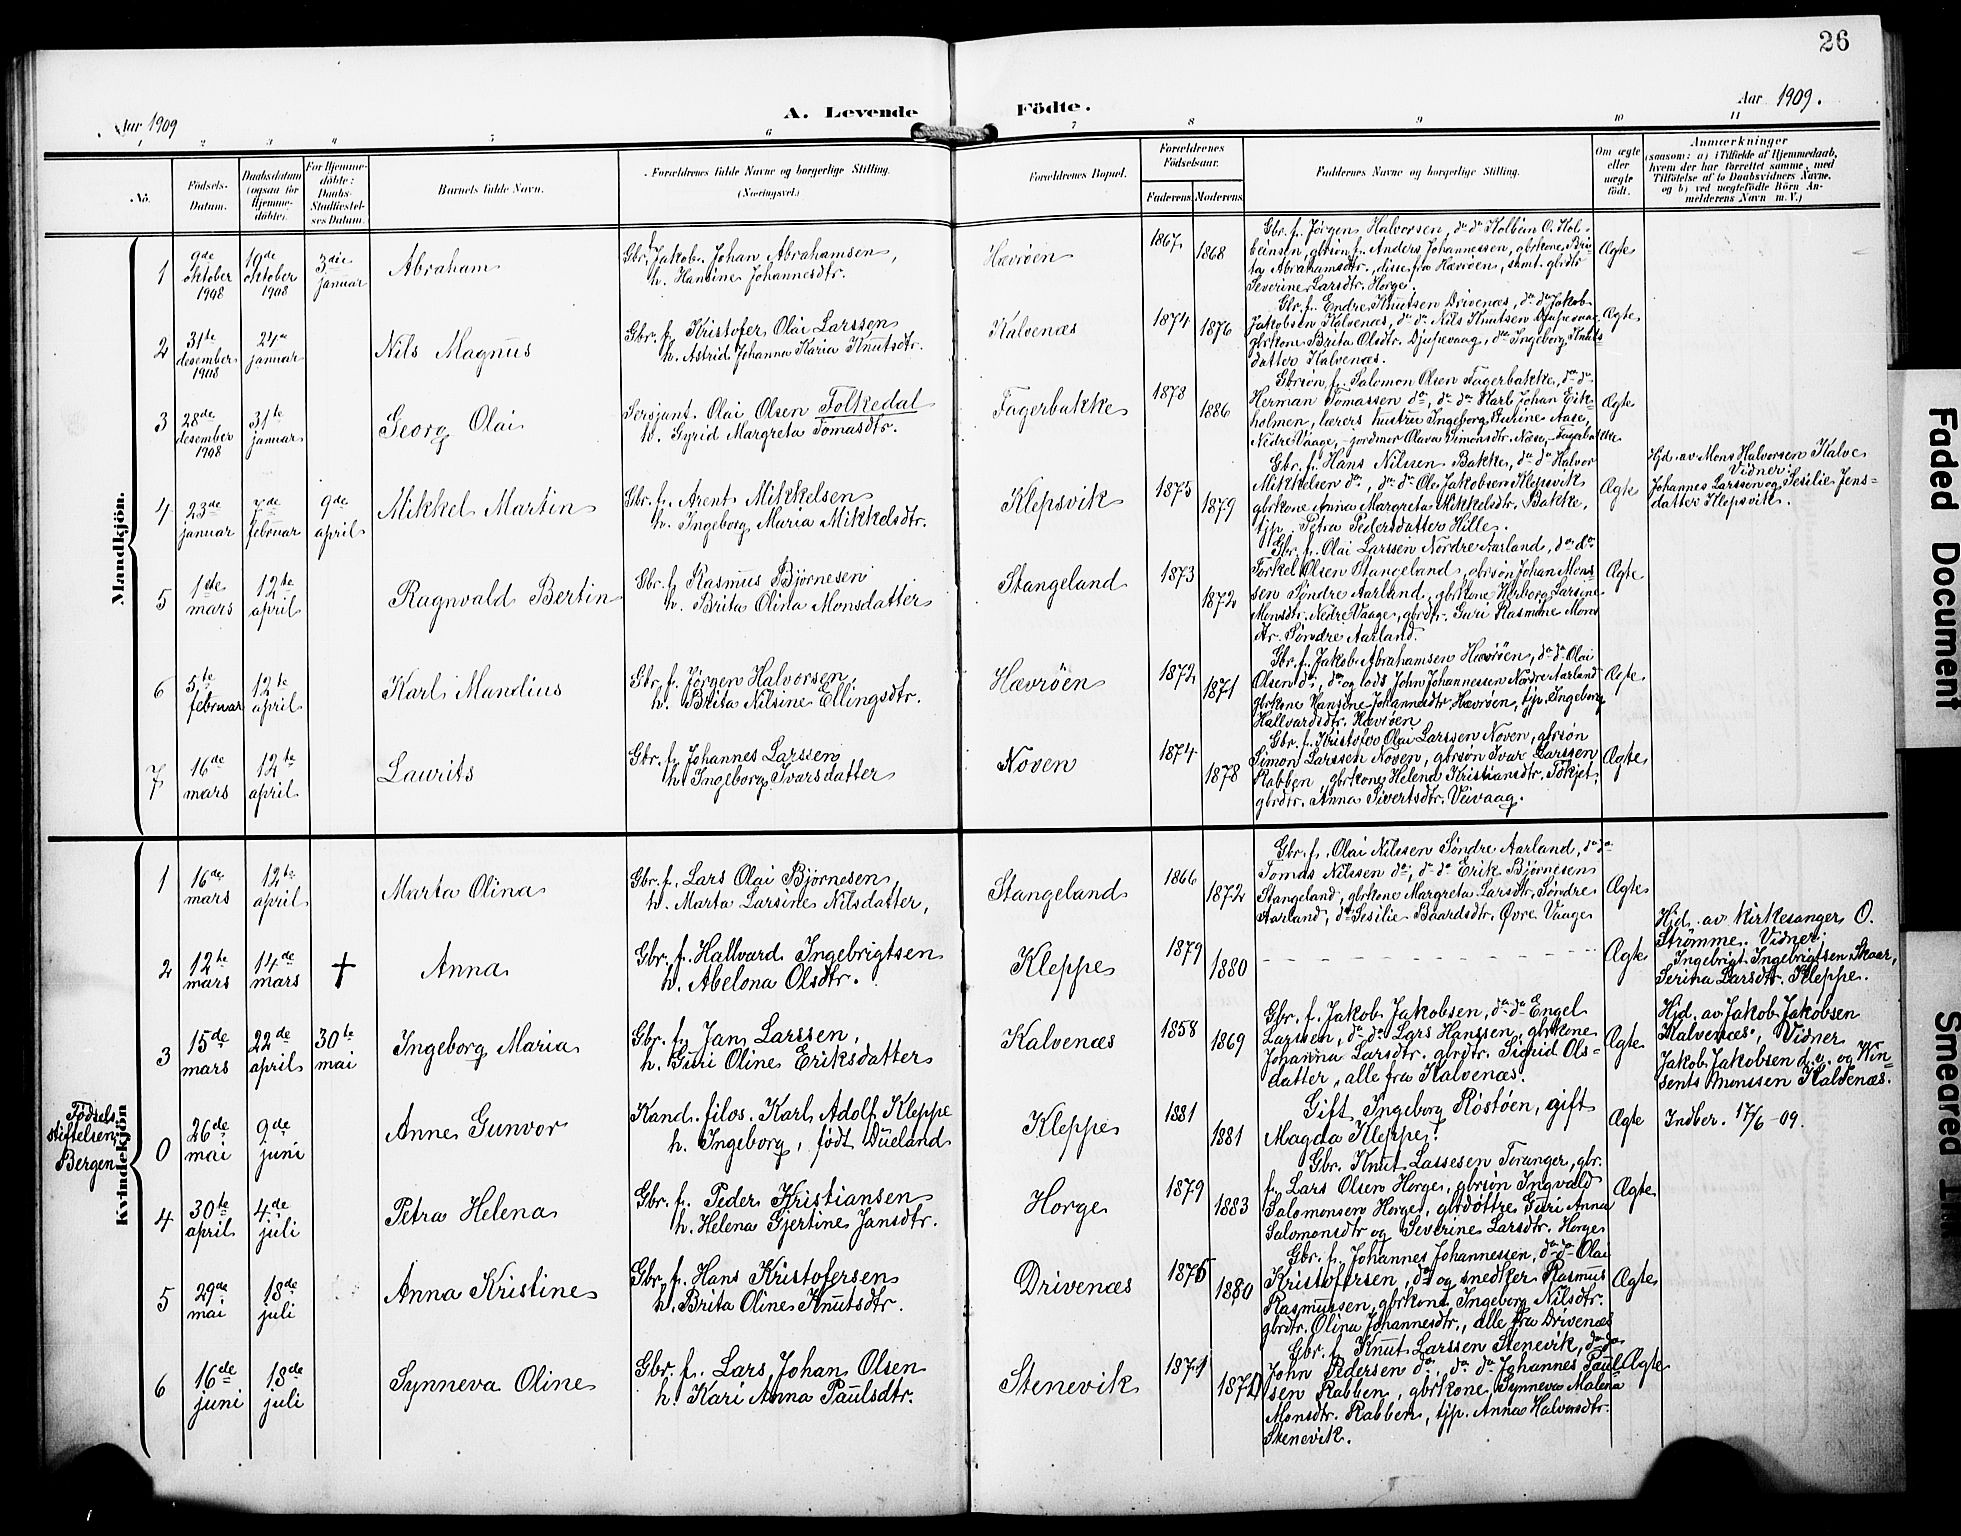 26
Aar 1909
A. Levende
Födte.
Aar 1909.
1 2 3 4 5 6 7 8 9 10 11
No.
Födsels-
Datum.
Daabsdatum
(ogsaa for
Hjemme-
döbte).
For Hjemme-
döbte:
Daabs-
Stadfæstel-
ses Datum.
Barnets fulde Navn.
Forældrenes fulde Navne og borgerlige Stilling.
(Næringsvei.)
Forældrenes Bopæl.
Forældrenes
Födselsaar.
Faderens
Moderens
Faddernes Navne og borgerlige Stilling.
Om ægte
eller
uægte
födt.
Anmærkninger
(saasom: a) i Tilfælde af Hjemmedaab,
hvem der har forrettet samme, med
Tilföielse af to Daabsvidners Navne,
og b) ved uægtefödte Börn An-
melderens Navn m. V.)
Mandkjön.
1
9de
oktober
1908
19de
oktober
1908
3die
januar
Abraham
Gbr. f. Jakob Johan Abrahamsen,
h. Hansine Johannesdtr.
Hævröen
1867
1868
Gbr. f. Jørgen Halvorsen, do do Kolbein O. Kol-
beinsen, gbrsøn f. Anders Johannessen, gbrkone Bri-
ta Abrahamsdtr., disse fra Hævröen, samt gbrdtr.
Severine Larsdtr. Horge.
Ægte
2
31te
desember
1908
24de
januar
Nils Magnus
Gbr. f. Kristofer Olai Larssen
h. Astrid Johanna Karia Knutsdtr.
Kalvenæs
1874
1876
Gbr. f. Endre Knutsen Drivenæs, do do Jakob
Jakobsen Kalvenæs, do do Nils Knutsen Djupevaag,
gbrkone Brita Olsdtr. Djupevaag, do Ingeborg Knuts-
datter Kalvenæs.
Ægte
3
28de
desember
1908
31te
januar
Georg Olai
Sersjant Olai Olsen Folkedal
h. Gyrid Margreta Tomasdtr.
Fagerbakke
1878
1886
Gbrsøn f. Salomon Olsen Fagerbakke, do do
Herman Tomassen do, do do Karl Johan Eik-
holmen, lærers hustru Ingeborg Aase,
Nedre Vaage, jordmor Olava Simonsdtr. Næse, Fagerbakke
Ægte
4
23de
januar
7de
februar
9de
april
Mikkel Martin
Gbr. f. Arent Mikkelsen
h. Ingeborg Maria Mikkelsdtr.
Klepsvik
1875
1879
Gbr. f. Hans Nilssen Bakke, do do Halvor
Mikkelsen do, do do Ole Jakobsen Klepsvik
gbrkone Anna Margreta Mikkelsdtr. Bakke,
tjp. Petra Pedersdatter Hille.
Ægte
Hjd. av Mons Halvorsen Kalve
Vidner:
Johannes Larssen og Sesilie Jens-
datter Klepsvik.
5
1ste
mars
12te
april
Ragnvald Bertin
Gbr. f. Rasmus Bjørnesen
h. Brita Olina Monsdatter
Stangeland
1873
1872
Gbr. f. Olai Larssen Nordre Aarland, do do
Torkel Olsen Stangeland, gbrsøn Johan Mons-
sen Söndre Aarland, gbrkone Herborg Larsine
Monsdtr. Nedre Vaage, gbrdtr. Guri Rasmine Mons
dtr. Søndre Aarland.
Ægte
6
5te
februar
12te
april
Karl Mandius
Gbr. f. Jørgen Halvorsen,
h. Brita Nilsine Ellingsdtr.
Hævröen
1872
1871
Gbr. f. Jakob Abrahamsen Hævröen, do do Olai
Olsen do, do og lods John Johannessen Nordre Aarland
gbrkone Hansine Johannesdtr. Hævröen, tjp. Ingeborg
Hallvardsdtr. Hævröen
Ægte
7
16de
mars
12te
april
Laurits
Gbr. f. Johannes Larssen
h. Ingeborg Ivarsdatter
Noven
1874
1878
Gbr. f. Kristofer Olai Larssen Noven, gbrsøn
Simon Larssen Noven, gbrsøn Ivar Larssen
Rabben, gbrkone Helena Kristiansdtr. Tökjet,
gbrdtr. Anna Sivertsdtr. Veivaag.
Ægte
Kvindekjön
1
16de
mars
12te
april
Marta Olina
Gbr. f. Lars Olai Bjørnesen,
h. Marta Larsine Nilsdatter,
Stangeland
1866
1872
Gbr. f. Olai Nilssen Søndre Aarland, do do
Tomas Nilssen do, do do Erik Bjørnesen
Stangeland, gbrkone Margreta Larsdtr. Söndre
Aarland, do Sesilie Baardsdtr. Øvre Vaage
Ægte
2
12te
mars
14de
mars
†
Anna
Gbr. f. Hallvard Ingebrigtsen
h. Abelona Olsdtr.
Kleppe
1879
1880
– – – – – – – – –
Ægte
Hjd. av kirkesanger O.
Strömme. Vidner:
Ingebrigt Ingebrigtsen Skaar,
Serina Larsdtr. Kleppe.
3
15de
mars
22de
april
30te
mai
Ingeborg Maria
Gbr. f. Jan Larssen,
h. Guri Oline Eriksdatter
Kalvenæs
1858
1869
Gbr. f. Jakob Jakobsen, do do Engel
Larssen, do do Lars Hanssen, gbrkone
Johanna Larsdtr. gbrdtr. Sigrid Ols-
datter, alle fra Kalvenæs.
Ægte
Hjd. av Jakob Jakobsen
Kalvenæs, Vidner
Jakob Jakobsen d.y. og Vin-
sents Monssen Kalvenæs.
Fødsels
stiftelsen,
Bergen
0
26de
mai
9de
juni
Anne Gunvor
Kand. filos. Karl Adolf Kleppe
h. Ingeborg, født Düeland
Kleppe
1881
1881
Gift Ingeborg Röstöen, gift
Magda Kleppe.
Ægte
Indber. 17/6 - 09.
4
30te
april
4de
juli
Petra Helena
Gbr. f. Peder Kristiansen
h. Helena Gjertine Jansdtr.
Horge
1879
1883
Gbr. Knut Lassesen Teranger, gbr.
f. Lars Olsen Horge, gbrsøn Ingvald
Salomonsen Horge, gbrdøttre Guri Anna
Salomonsdtr og Severine Larsdtr. Horge
Ægte
5
29de
mai
18de
juli
Anna Kristine
Gbr. f. Hans Kristofersen
h. Brita Oline Knutsdtr.
Drivenæs
1876
1880
Gbr. f. Johannes Johannessen, do do Olai
Kristofersen, do og snedker Rasmus
Rasmussen, gbrkone Ingeborg Nilsdtr.
gbrdtr. Olina Johannesdtr., alle fra Drivenæs
Ægte
6
16de
juni
18de
juli
Synneva Oline
Gbr. f. Lars Johan Olsen
h. Kari Anna Paulsdtr.
Stenevik
1871
Gbr. f. Knut Larssen Stenevik, do do
John Pedersen do, do do Johannes Paul-
sen Rabben, gbrkone Synneva Malena
Monsdtr. Rabben, tjp. Anna Halvorsdtr.
Stenevik.
Ægte
Faded Document
Smeared Ink